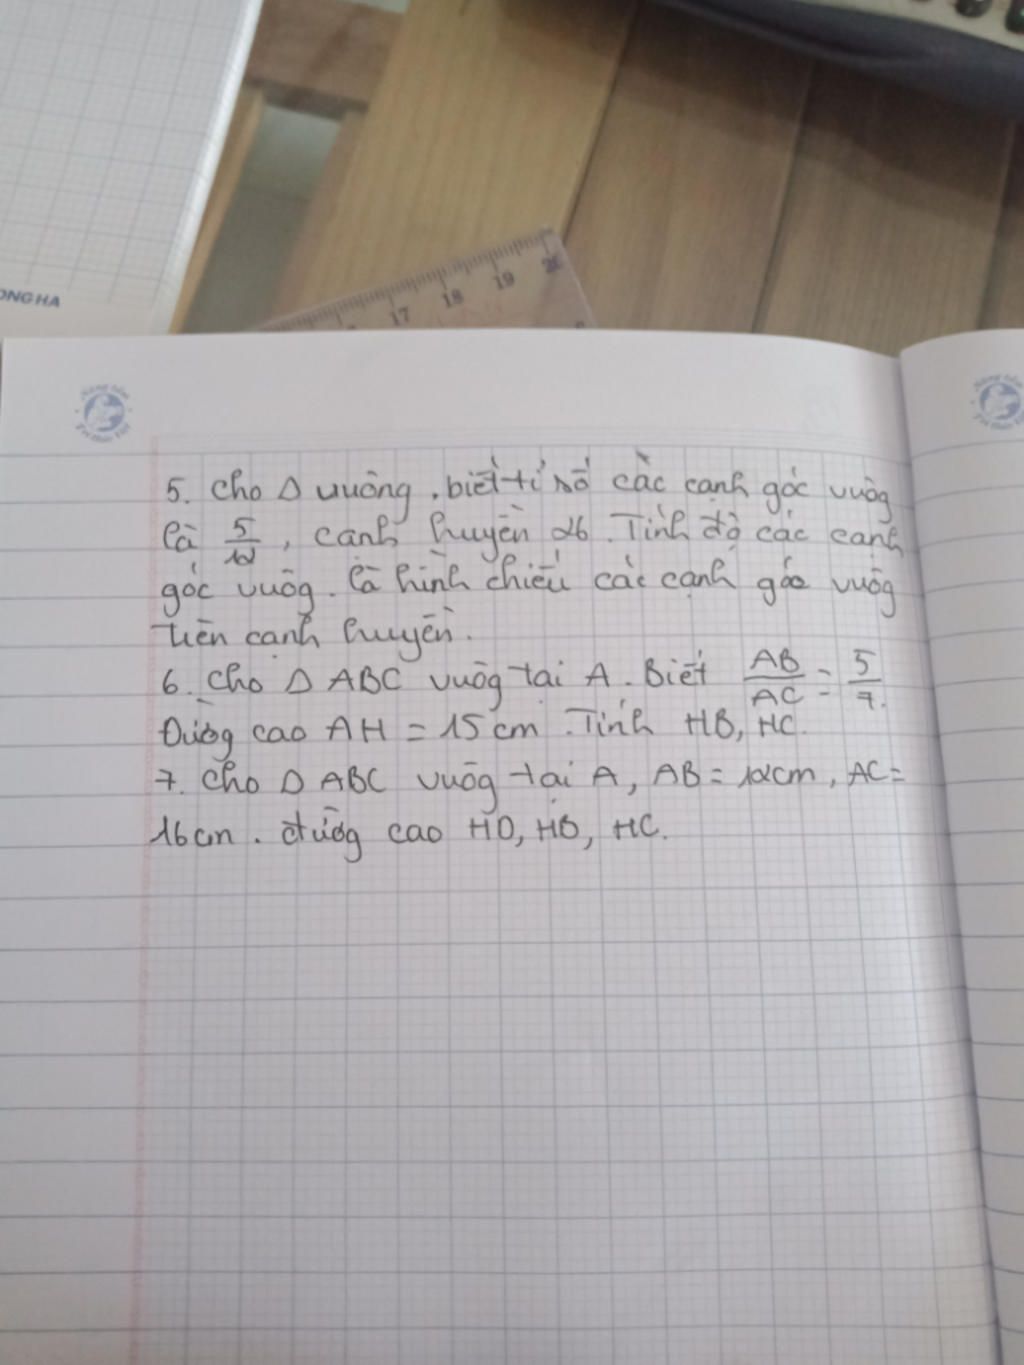 ONG HA
17 18 19 20
5. Cho Δ vuông, biết tỉ số các cạnh góc vuôg
là 5/12, cạnh huyền 26. Tính độ các cạnh
góc vuôg. là hình chiếu các cạnh góc vuôg
trên cạnh huyền.
6. Cho Δ ABC vuôg tại A. Biết AB/AC = 5/7.
Đườg cao AH = 15 cm. Tính HB, HC.
7. Cho Δ ABC vuôg tại A, AB = 12cm, AC =
16cm. đườg cao HD, HB, HC.